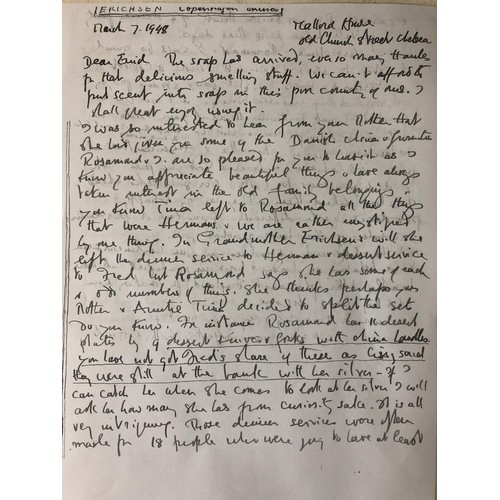 ERICHSEN Copenhagen china
March 7. 1948
Mallord House
Old Church Street Chelsea
Dear Enid The soap has arrived, ever so many thanks
for that delicious smelling stuff. We can't afford to
put scent into soaps in this poor country of ours. I
shall great enjoy using it.
I was so interested to hear from your Mother that
she has given you some of the Danish china &
Rosamond & I are so pleased for you to have it as I
know you appreciate beautiful things & have always
taken interest in the old family belongings.
you know Tina left to Rosamond all the things
that were Hermans & we are rather mystified
by one thing. In Grandmother Erichsen's will she
left the dinner service to Herman & dessert service
to Fred but Rosamond says she has some of each
& odd numbers of things. She thinks perhaps your
Mother & Auntie Tina decided to split the set
Do you know. For instance Rosamond has 11 dessert
plates & 9 dessert knives & forks with china handles.
you have not got Fred's share of these as said
they were still at the bank with her silver - if I
can catch her when she comes to look at her silver I will
ask her how many she has from curiosity sake. It is all
very intriguing. Those dinner services were often
made for 18 people who were going to have at least